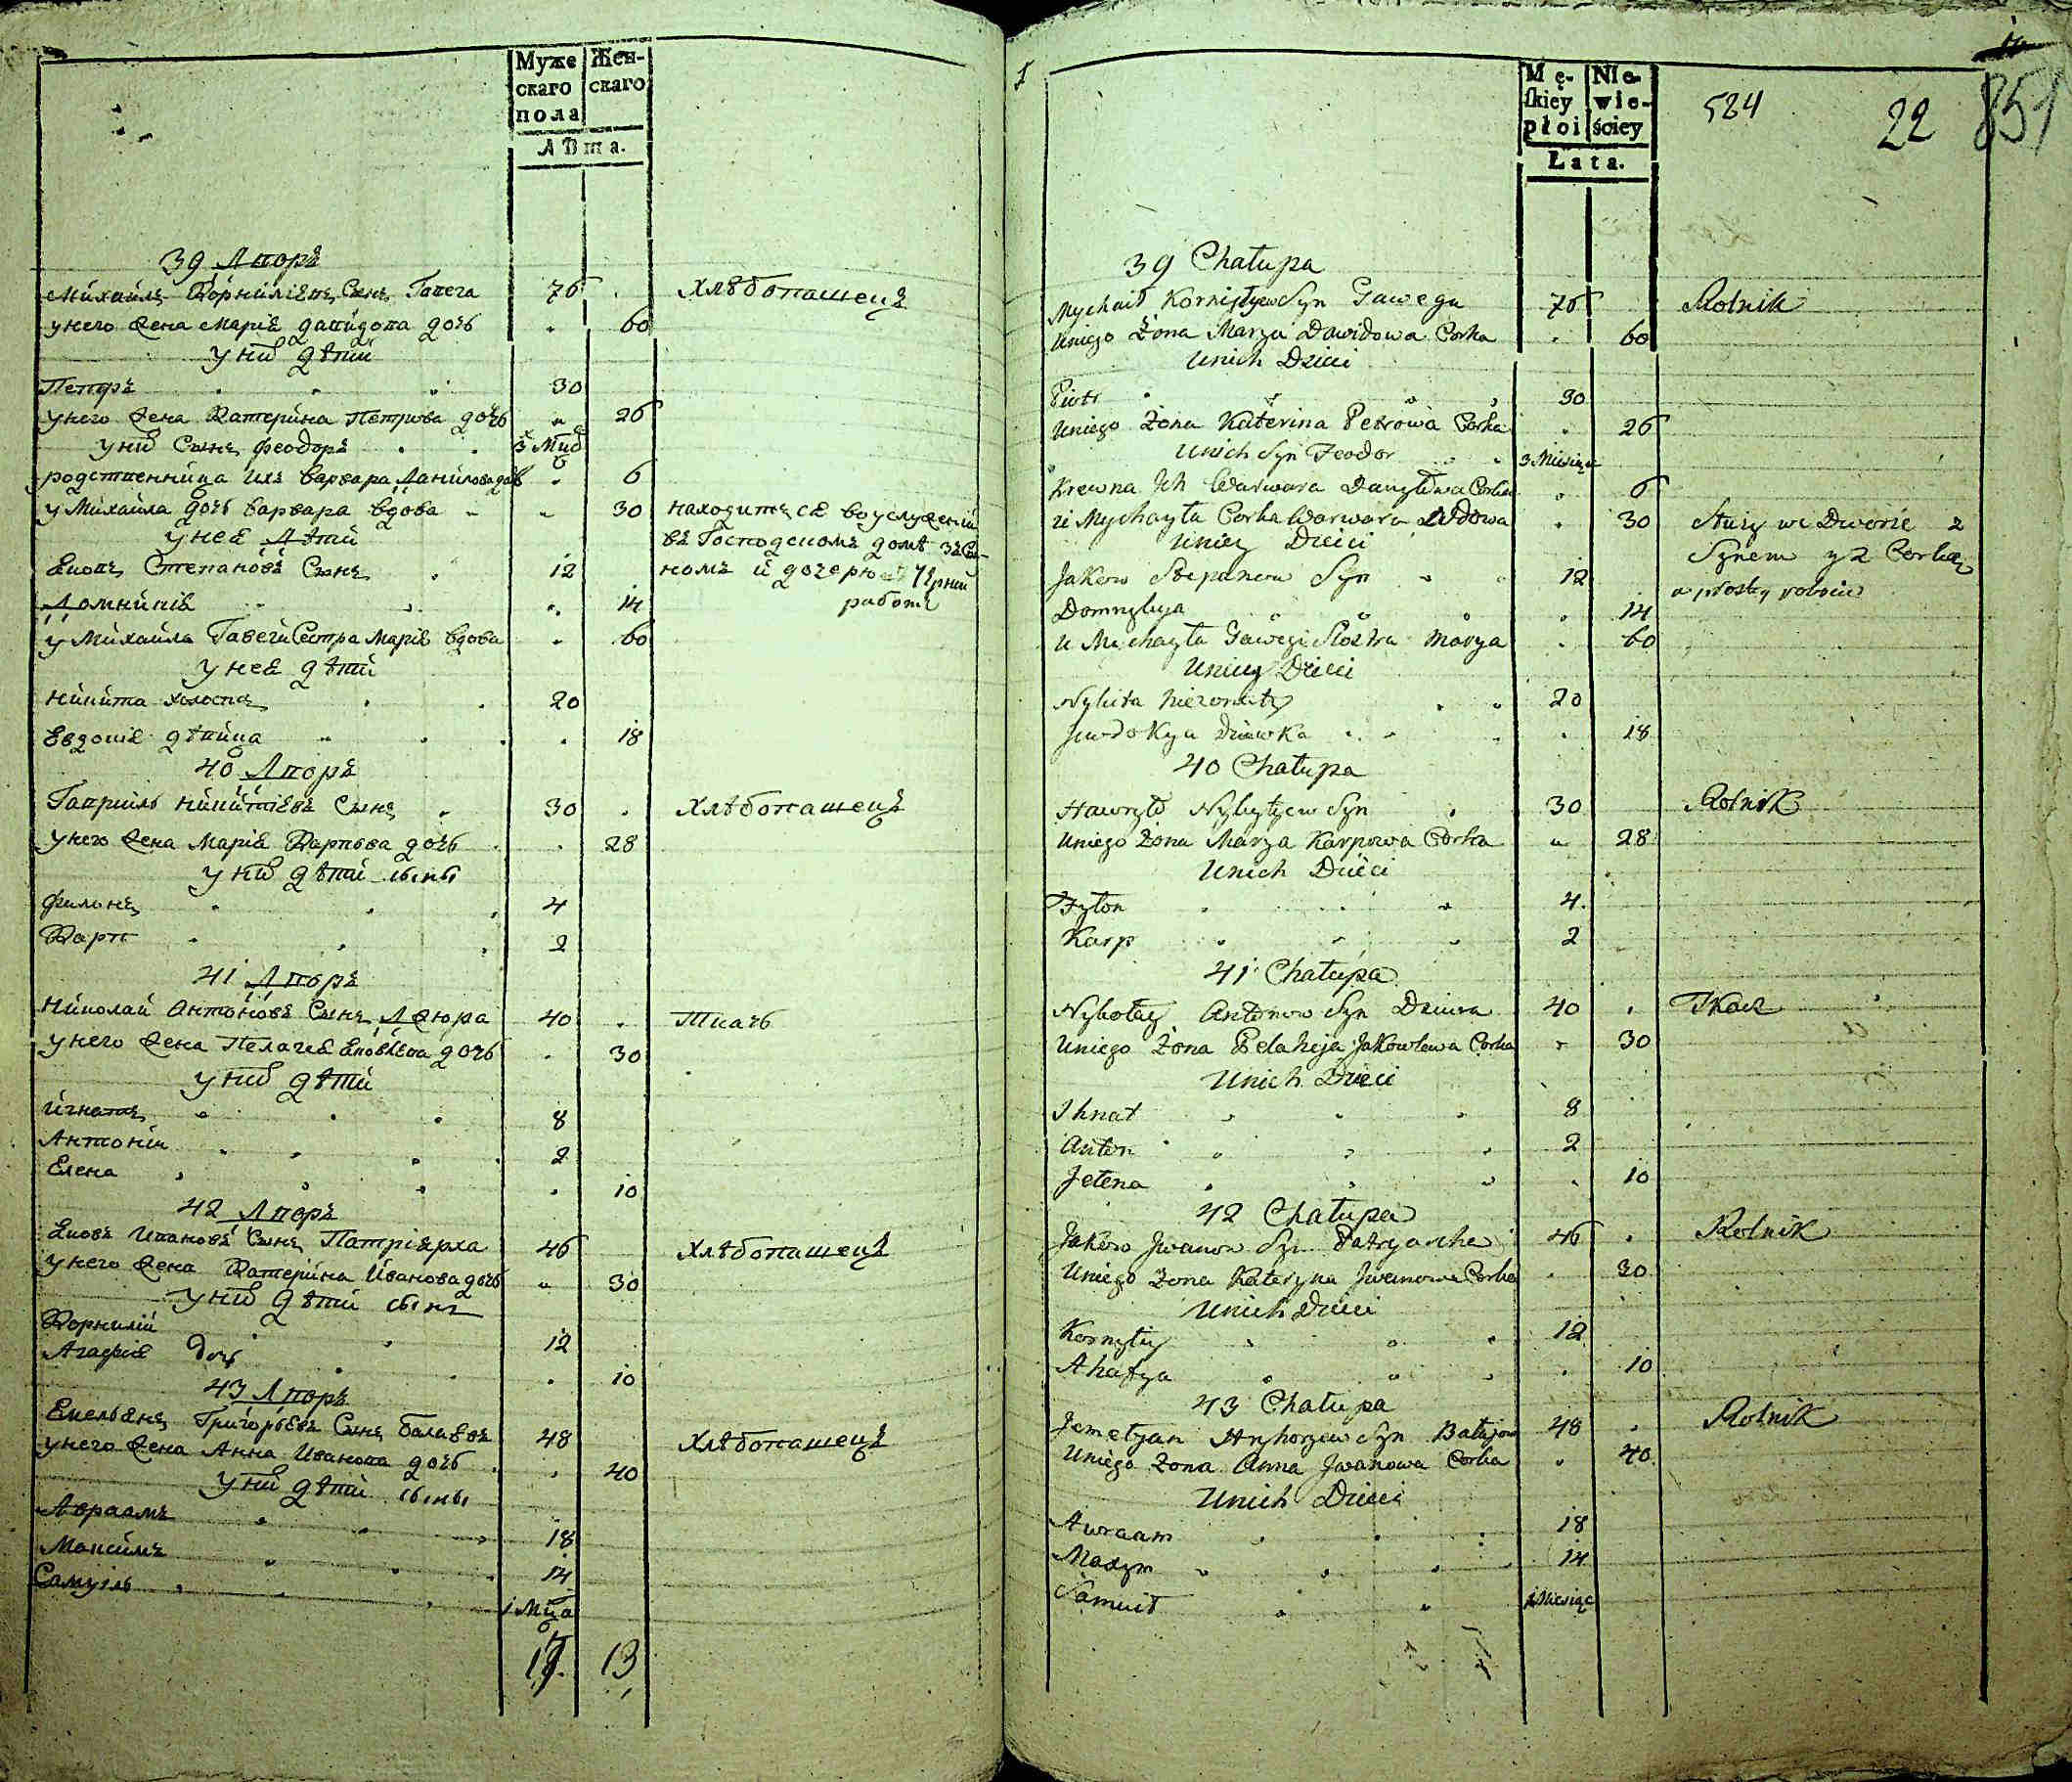 Муже Жен-
скаго скаго
пола
Лѣта.
39 Дворъ
Михайлъ Корниліевъ Сынъ Гавега 76 Хлѣбопашецъ
у него жена Маріѧ Давидова дочь 60
у них дѣти
Петръ 30
у него жена Катерина Петрова дочь 26
у них Сынъ Феодоръ 3 Мцѣ
родственница ихъ Варвара Данилова доч 6
у Михайла дочь Варвара вдова 30 находитсѧ во услуженіи
у неѧ дѣти въ Господскомъ домѣ зъ Сы-
Ѧковъ Степановъ Сынъ 12 номъ и дочерью в чорній
Домникіѧ 14 работѣ
у Михайла Гавеги Сестра Маріѧ вдова 60
у неѧ дѣти
Никита холостъ 20
Евдокіѧ дѣвица 18
40 Дворъ
Гавриилъ Никитіевъ Сынъ 30 Хлѣбопашецъ
у него жена Маріѧ Карпова дочь 28
у них дѣти сыны
Филонъ 4
Карп 2
41 Дворъ
Николай Антоновъ Сынъ Дзюра 40 Ткачь
у него жена Пелагеѧ Ѧковлева дочь 30
у них дѣти
Игнатъ 8
Антоній 2
Елена 10
42 Дворъ
Ѧковъ Ивановъ Сынъ Патріѧрха 46 Хлѣбопашецъ
у него жена Катерина Иванова дочь 30
у них дѣти сынъ
Корнилій 12
Агафіѧ дочь 10
43 Дворъ
Емельѧнъ Григорьевъ Сынъ Балаѣвъ 48 Хлѣбопашецъ
у него жена Анна Иванова дочь 40
у них дѣти сыны
Авраамъ 18
Максимъ 14
Самуилъ 1 Мца
17 13
Mę- Nie-
ſkiey wie-
płci ściey
Łata.
524 22 851
39 Chałupa
Mychaił Korniłyjew Syn Gawega 76 Rolnik
Uniego Żona Marya Dawidowa Corka 60
Unich Dzieci
Piotr 30
Uniego Żona Katerina Petrowa Corka 26
Unich Syn Feodor 3 Miesiące
Krewna Ich Warwara Danyłowa Corka 6
U Mychayła Corka Warwara Wdowa 30 Służy we Dworze z
Uniey Dzieci Synem y z Corką
Jakow Stepanow Syn 12 w prostey robocie
Domnykya 14
U Mychayła Gawegi Siostra Marya 60
Uniey Dzieci
Nykita nieżonaty 20
Jewdokya Dziewka 18
40 Chałupa
Hawryło Nykytyjew Syn 30 Rolnik
Uniego Żona Marya Karpowa Corka 28
Unich Dzieci
Fyłon 4
Karp 2
41 Chałupa
Nykołay Antonow Syn Dziura 40 Tkacz
Uniego Żona Pelahija Jakowlewa Corka 30
Unich Dzieci
Ihnat 8
Anton 2
Jełena 10
42 Chałupa
Jakow Jwanow Syn Patryarcha 46 Rolnik
Uniego Żona Kateryna Jwanowa Corka 30
Unich Dzieci
Kornyłiy 12
Ahafya 10
43 Chałupa
Jemełjan Hryhorjew Syn Bałajow 48 Rolnik
Uniego Żona Anna Jwanowa Corka 40
Unich Dzieci
Awraam 18
Maxym 14
Samuił 1 Miesiąc